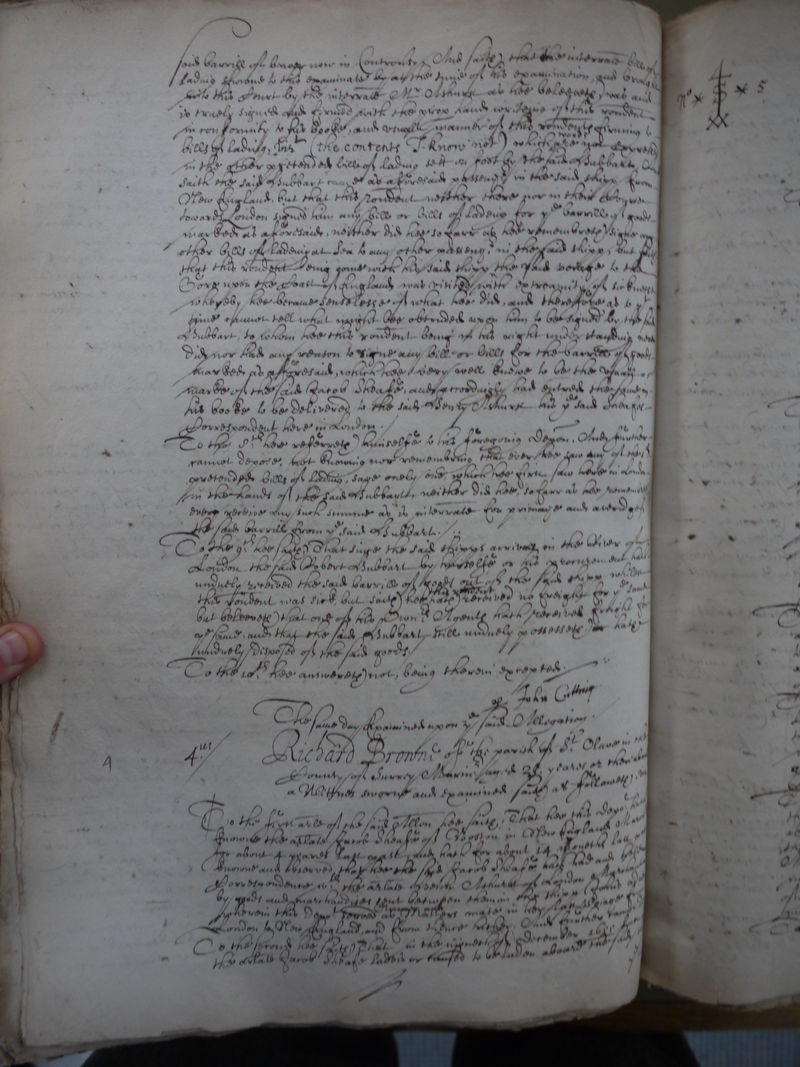 said barrills of beaver now in Controversy, And saith that the interrate bill of
lading showne to this examinate by at the time of his examination, and brought
into this Court by the interrate Mr Ashurst as hee beleeveth, was and
is truely signed and firmed with the prop hand writeing of this rendent
in conformity to his booke, and usuall manner of this rendents firming to
bills of lading, (the contents I know not) which are not expressed
in the other pretended bills of lading sett on foot by the said Hubbart, And
saith the said Hubbart came as aforesaid passenger in the said shipp from
New England, but that this rendent neither there nor in their
towards London signed him any bill or bills of lading for ye barrills of goods
marked as aforesaid, neither did hee so farr as hee remembreth signe any
other bills of lading at Sea to any other passengr in the said shipp, but saith
that this rendent being come with his said shipp the said voyage to the
upon the Coast of England was visited with extreamity of sicknesse
whereby hee became sencelesse of what hee did, and therefore as to yt
time cannot tell what might bee obtruded upon him to bee signed by the said
Hubbart, to whom hee this rendent being in his right understanding never
did nor had any reason to signe any bill or bills for the barrills of goods
marked as aforesaid, which hee very well knewe to be the
marke of the said Jacob Sheafe, and accordingly had entred the same in
his booke to be delivered to the said Henry Ashurst his ye said Sheafes
Correspondent here in London./
To the 8th hee referreth himselfe to his foregoing depon. And further
cannot depose, not knowing nor remembring that ever hee saw any of the
pretended bills of lading, save onely one, which hee first saw here in London
in the hands of the said Hubbart, neither did hee so farr as hee remembers
ever receive any such summe as is interrate for primage and averidge of
the said barrills from ye said Hubbart./
To the 9th hee saith That since the said shipps arrivall in the River of
London the said Robert Hubbart by himselfe or his procurement hath
unduely received the said barrills of goods out of the said shipp while
this rendent was sick, but saith hee hath received no freight for ye same
but beleeveth that one of his Owners Agents hath received freight for
ye same, and that the said Hubbart still unduely possesseth or hath
unduely disposed of the said goods.
To the 10th hee answereth not, being therein excepted./
John Cutting
The same day Examined upon ye said Allegation.
4us/ Richard Browne of the parish of St Olave in the
County of Surrey Mariner aged 28 yeares or thereabouts
a Wittnes sworne and examined saith as followeth,
To the first arle of the said Allon hee saith, That hee this depont hath
knowne the arlate Jacob Sheafe of Boston in New England
for about 4 yeares last past, and hath for about 14 moneths last
knowne and observed that hee the said Jacob Sheafe hath had and
Correspondence with the arlate Henry Ashurst of London
by goods and marchandizes sent betweene them in the shipp
wherein this depont served as mate in her voyage from
London to New England, and from thence hither, And further
To the second hee saith That in the moneth of December 1651
the arlate Jacob Sheafe laded or caused to be laden aboard the said
No 5
4